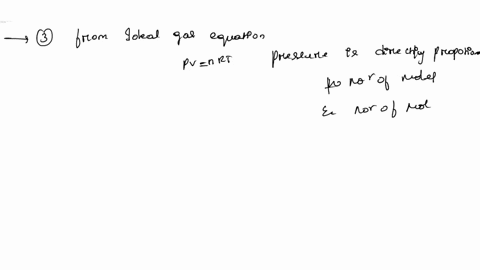 → ③ from Ideal gas equation
PV = nRT pressure is directly proportion
to nor of moles
& nor of mol